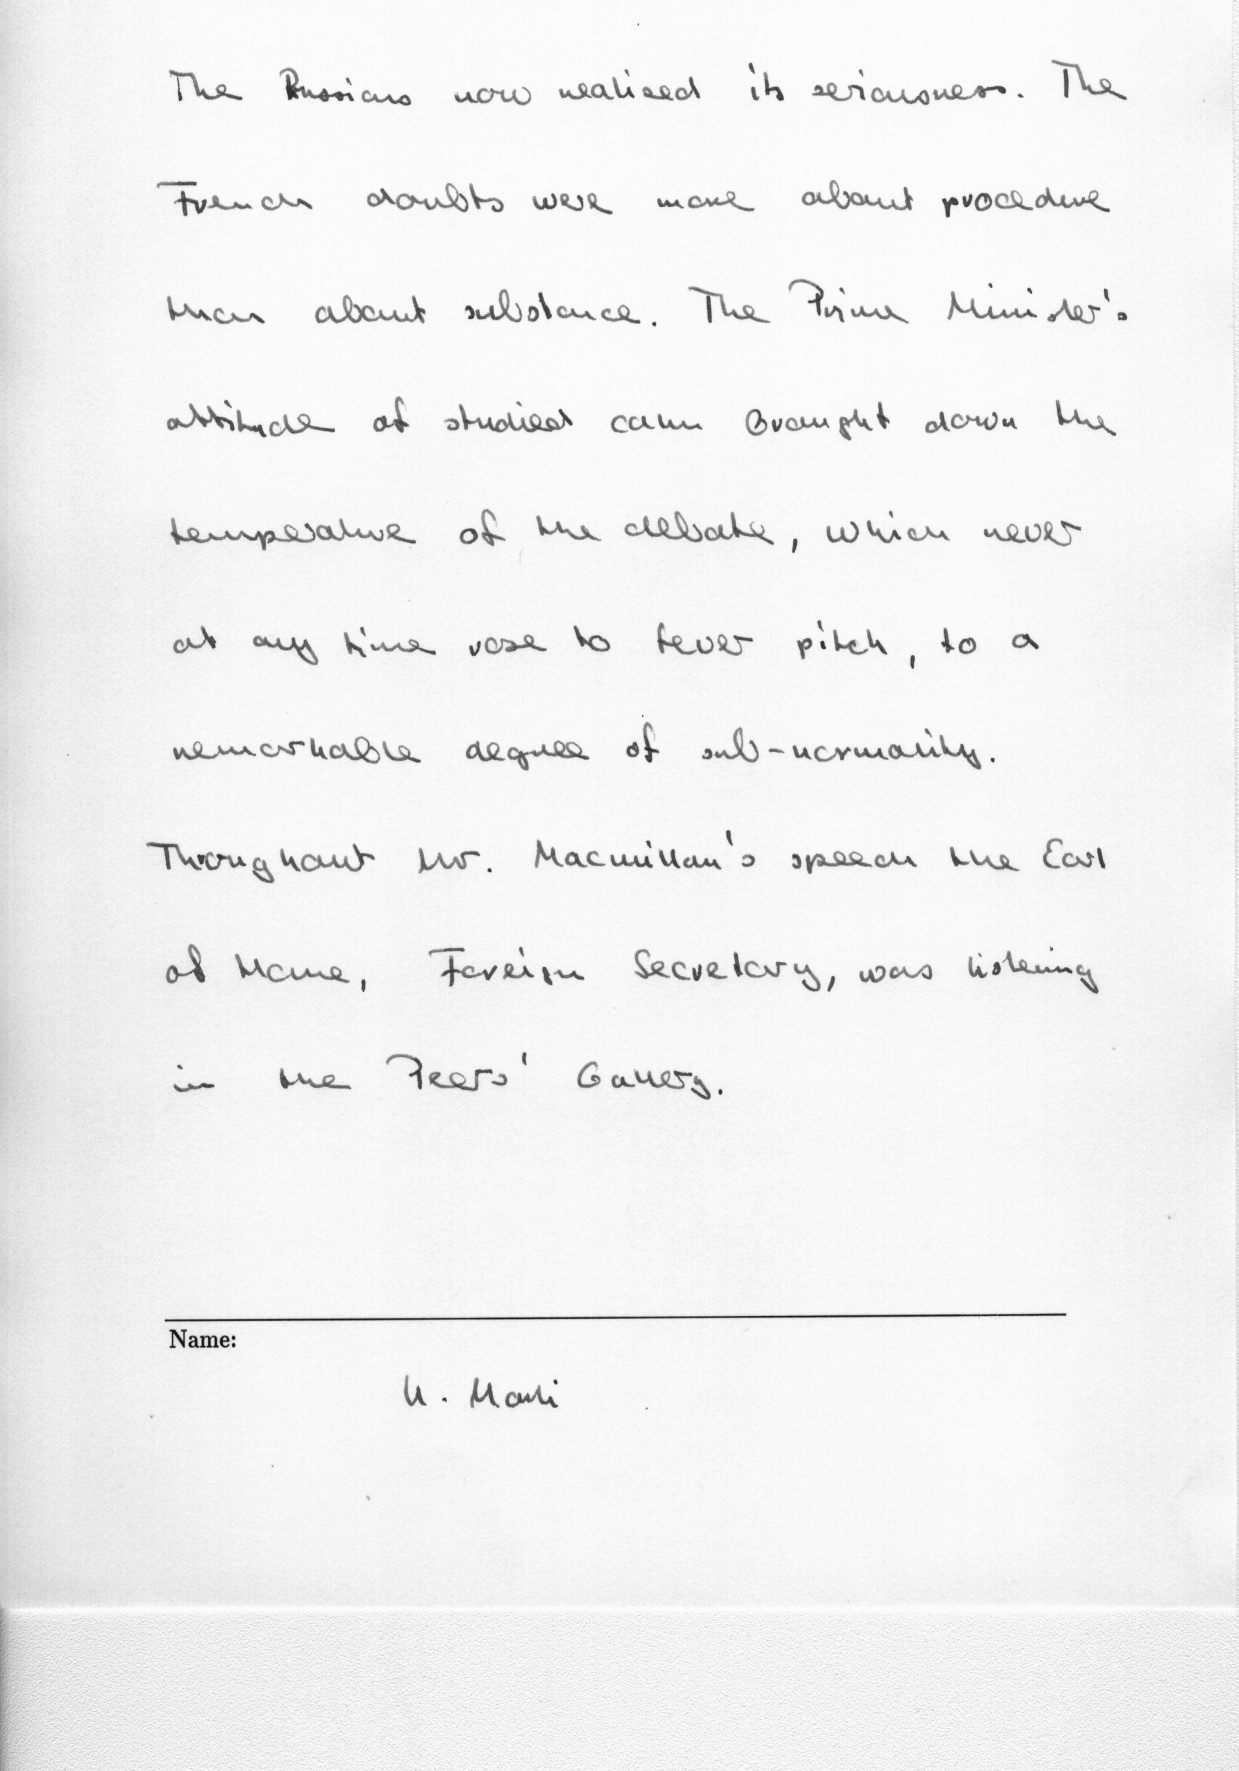 The Russians now realised its seriousness. The
French doubts were more about procedure
than about substance. The Prime Minister's
attitude of studied calm brought down the
temperature of the debate, which never
at any time rose to fever pitch, to a
remarkable degree of sub-normality.
Throughout Mr. Macmillan's speech the Earl
of Home, Foreign Secretary, was listening
in the Peers' Gallery.
Name: